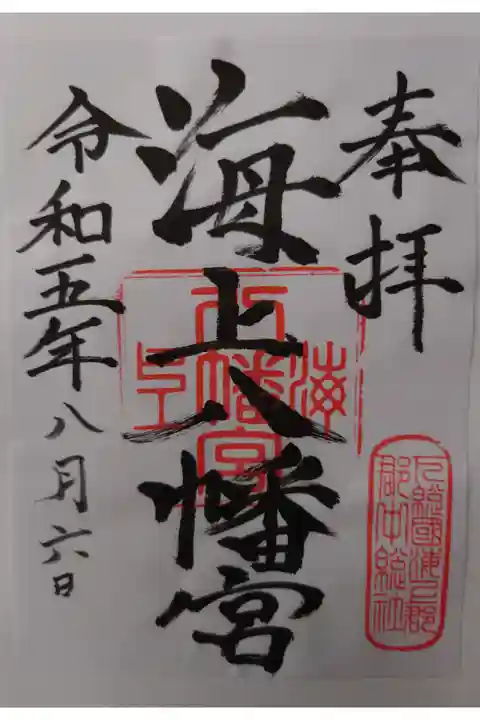 奉拝
海上八幡宮
令和五年八月六日
海上八幡宮印
下総國海上郡
郡中総社